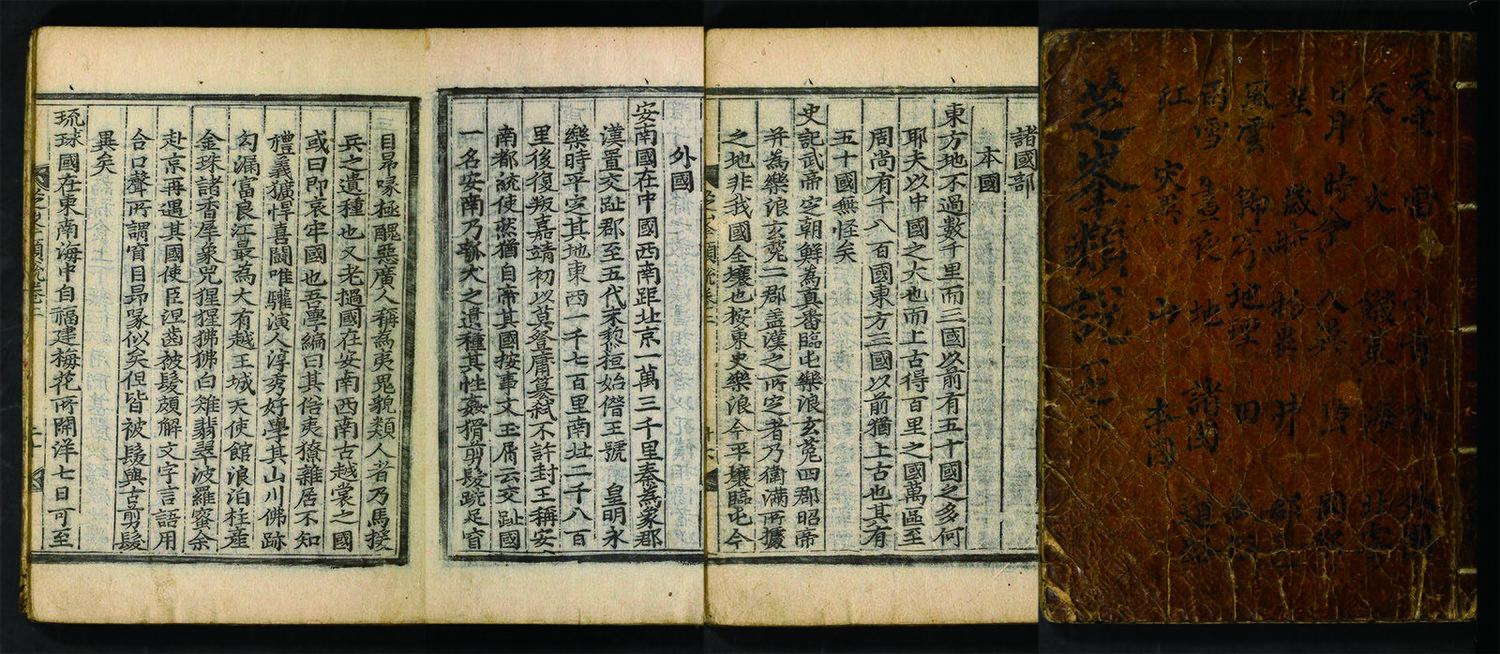 天
日月 時令
星 井
風雲 地理 田
雨雪 晝夜 地 諸國 道路
虹 災異 山 本國
芝峯類說
諸國部
本國
東方地不過數千里而三國以前有五十國之多何
耶夫以中國之大也而上古得百里之國萬區至
周尚有千八百國東方三國以前猶上古也其有
五十國無怪矣
史記武帝定朝鮮為真番臨屯樂浪玄菟四郡昭帝
并為樂浪玄菟二郡盖漢之所定者乃衛滿所據
之地非我國全壤也按東史樂浪今平壤臨屯今
外國
安南國在中國西南距北京一萬三千里秦為象郡
漢置交趾郡至五代末黎桓始僭王號 皇明永
樂時平定其地東西一千七百里南北二千八百
里後復叛嘉靖初以莫登庸篡弒不許封王稱安
南都統使然猶自帝其國按事文玉屑云交趾國
一名安南乃瓠犬之遺種其性姦猾剪髮跣足窅
目昻喙極醜惡廣人稱為夷鬼貌類人者乃馬援
兵之遺種也又老撾國在安南西南古越裳之國
或曰即哀牢國也吾學編曰其俗夷獠雜居不知
禮義獷悍喜鬪唯驩演人淳秀好學其山川佛跡
勾漏富良江最為大有越王城天使館浪泊柱產
金珠諸香犀象兕猩猩狒狒白雉翡翠波羅蜜余
赴京再遇其國使臣涅齒被髮頗解文字言語用
合口聲所謂窅目昻喙似矣但皆被髮與古剪髮
異矣
琉球國在東南海中自福建梅花所開洋七日可至